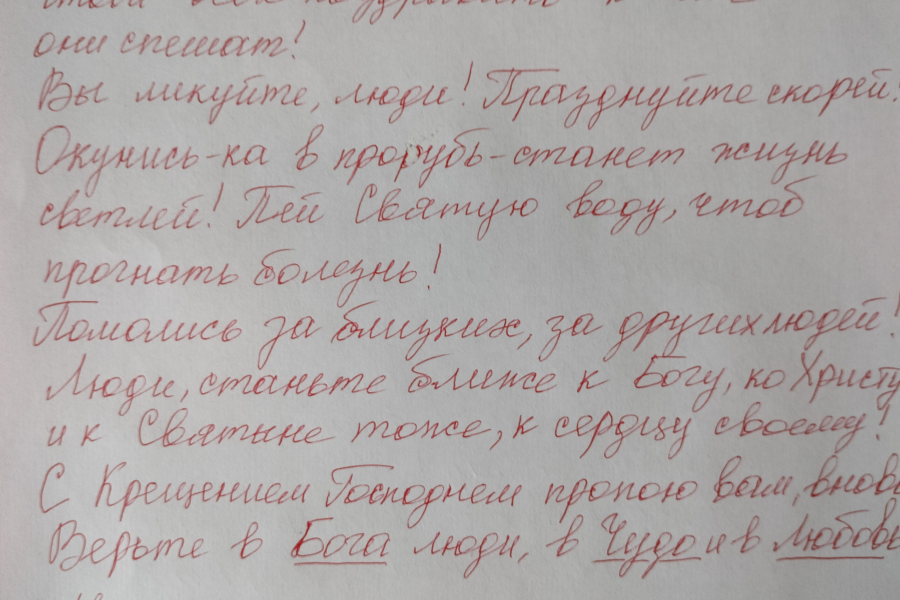 они спешат!
Вы ликуйте, люди! Празднуйте скорей!
Окунись-ка в прорубь-станет жизнь
светлей! Пей Святую воду, чтоб
прогнать болезнь!
Помолись за близких, за других людей!
Люди, станьте ближе к Богу, ко Христу
и к Святыне тоже, к сердцу своему!
С Крещением Господнем пропою вам, вновь
Верьте в Бога люди, в Чудо и в Любовь